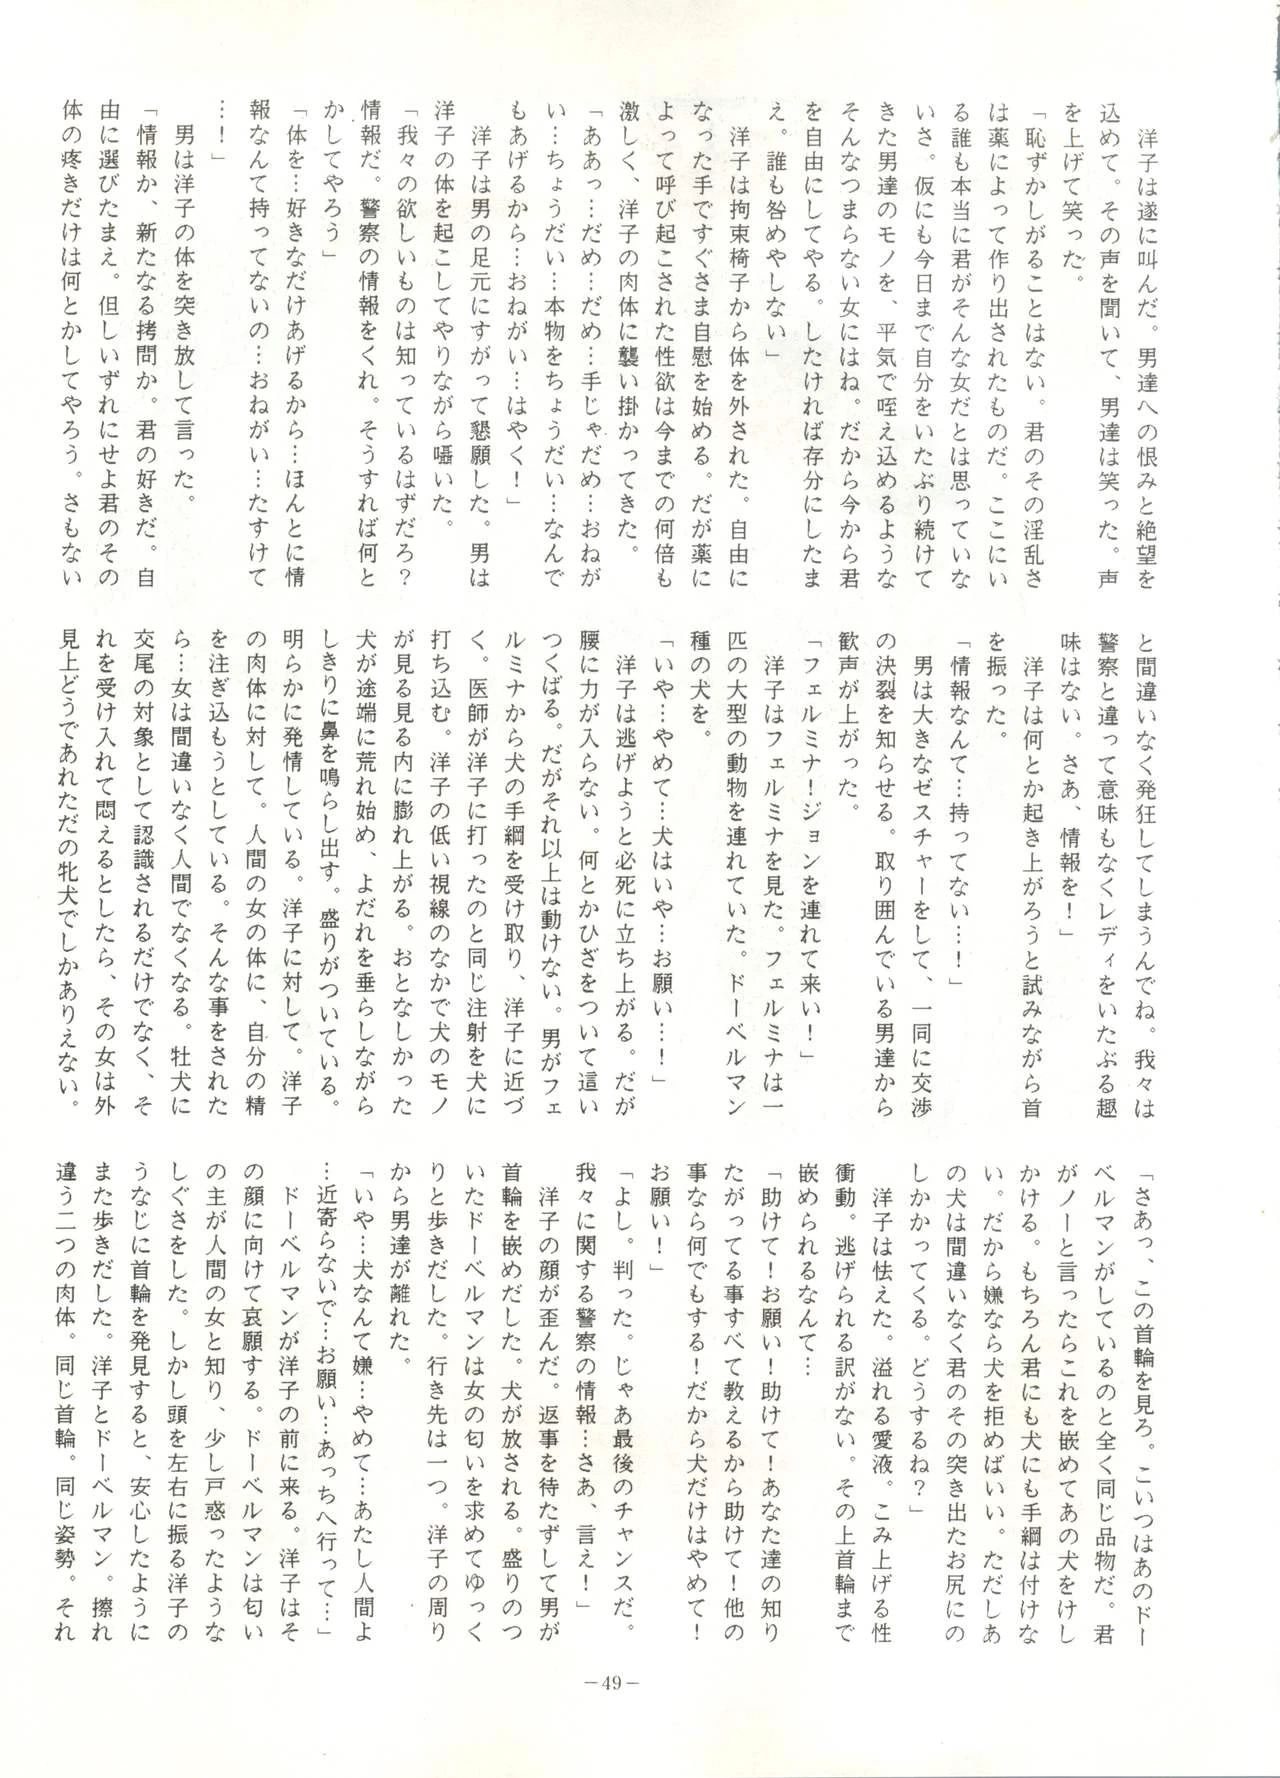 洋子は遂に叫んだ。男達への恨みと絶望を
込めて。その声を聞いて、男達は笑った。声
を上げて笑った。
「恥ずかしがることはない。君のその淫乱さ
は薬によって作り出されたものだ。ここにい
る誰も本当に君がそんな女だとは思っていな
いさ。仮にも今日まで自分をいたぶり続けて
きた男達のモノを、平気で咥え込めるような
そんなつまらない女にはね。だから今から君
を自由にしてやる。したければ存分にしたま
え。誰も咎めやしない」
洋子は拘束椅子から体を外された。自由に
なった手ですぐさま自慰を始める。だが薬に
よって呼び起こされた性欲は今までの何倍も
激しく、洋子の肉体に襲い掛かってきた。
「ああっ…だめ…だめ…手じゃだめ…おねが
い…ちょうだい…本物をちょうだい…なんで
もあげるから…おねがい…はやく！」
洋子は男の足元にすがって懇願した。男は
洋子の体を起こしてやりながら囁いた。
「我々の欲しいものは知っているはずだろ？
情報だ。警察の情報をくれ。そうすれば何と
かしてやろう」
「体を…好きなだけあげるから…ほんとに情
報なんて持ってないの…おねがい…たすけて
…！」
男は洋子の体を突き放して言った。
「情報か、新たなる拷問か。君の好きだ。自
由に選びたまえ。但しいずれにせよ君のその
体の疼きだけは何とかしてやろう。さもない
と間違いなく発狂してしまうんでね。我々は
警察と違って意味もなくレディをいたぶる趣
味はない。さあ、情報を！」
洋子は何とか起き上がろうと試みながら首
を振った。
「情報なんて…持ってない…！」
男は大きなゼスチャーをして、一同に交渉
の決裂を知らせる。取り囲んでいる男達から
歓声が上がった。
「フェルミナ！ジョンを連れて来い！」
洋子はフェルミナを見た。フェルミナは一
匹の大型の動物を連れていた。ドーベルマン
種の犬を。
「いや…やめて…犬はいや…お願い…！」
洋子は逃げようと必死に立ち上がる。だが
腰に力が入らない。何とかひざをついて這い
つくばる。だがそれ以上は動けない。男がフェ
ルミナから犬の手綱を受け取り、洋子に近づ
く。医師が洋子に打ったのと同じ注射を犬に
打ち込む。洋子の低い視線のなかで犬のモノ
が見る見る内に膨れ上がる。おとなしかった
犬が途端に荒れ始め、よだれを垂らしながら
しきりに鼻を鳴らし出す。盛りがついている。
明らかに発情している。洋子に対して。洋子
の肉体に対して。人間の女の体に、自分の精
を注ぎ込もうとしている。そんな事をされた
ら…女は間違いなく人間でなくなる。牡犬に
交尾の対象として認識されるだけでなく、そ
れを受け入れて悶えるとしたら、その女は外
見上どうであれただの牝犬でしかありえない。
「さあっ、この首輪を見ろ。こいつはあのドー
ベルマンがしているのと全く同じ品物だ。君
がノーと言ったらこれを嵌めてあの犬をけし
かける。もちろん君にも犬にも手綱は付けな
い。だから嫌なら犬を拒めばいい。ただしあ
の犬は間違いなく君のその突き出たお尻にの
しかかってくる。どうするね？」
洋子は怯えた。溢れる愛液。こみ上げる性
衝動。逃げられる訳がない。その上首輪まで
嵌められるなんて…
「助けて！お願い！助けて！あなた達の知り
たがってる事すべて教えるから助けて！他の
事なら何でもする！だから犬だけはやめて！
お願い！」
「よし。判った。じゃあ最後のチャンスだ。
我々に関する警察の情報…さあ、言え！」
洋子の顔が歪んだ。返事を待たずして男が
首輪を嵌めだした。犬が放される。盛りのつ
いたドーベルマンは女の匂いを求めてゆっく
りと歩きだした。行き先は一つ。洋子の周り
から男達が離れた。
「いや…犬なんて嫌…やめて…あたし人間よ
…近寄らないで…お願い…あっちへ行って…」
ドーベルマンが洋子の前に来る。洋子はそ
の顔に向けて哀願する。ドーベルマンは匂い
の主が人間の女と知り、少し戸惑ったような
しぐさをした。しかし頭を左右に振る洋子の
うなじに首輪を発見すると、安心したように
また歩きだした。洋子とドーベルマン。擦れ
違う二つの肉体。同じ首輪。同じ姿勢。それ
－49－